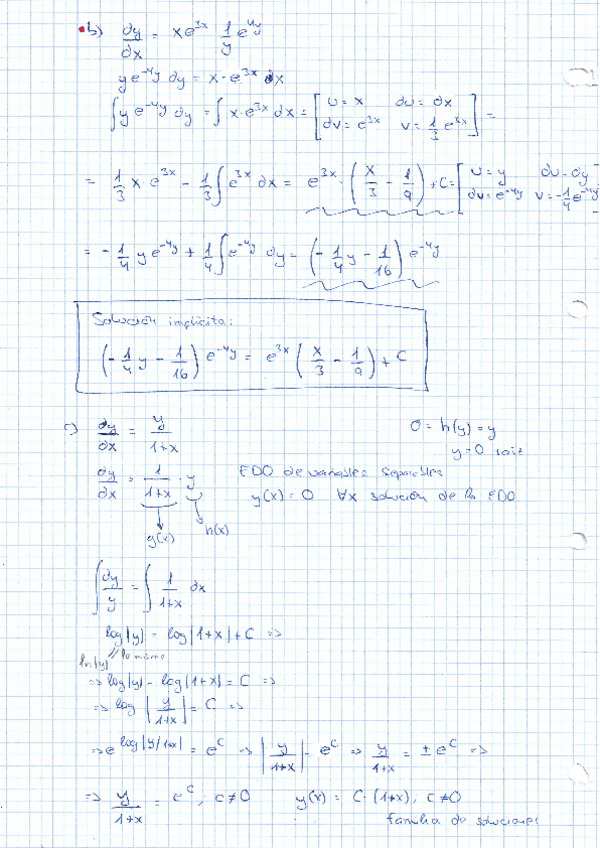 b) dy/dx = xe^{3x} 1/y e^{4y}
ye^{-4y} dy = x·e^{3x} dx
∫ y e^{-4y} dy = ∫ x·e^{3x} dx = [u = x du = dx dv = e^{3x} v = 1/3 e^{3x}] =
= 1/3 x·e^{3x} - 1/3 ∫ e^{3x} dx = e^{3x}·(x/3 - 1/9) + C = [u = y du = dy dv = e^{-4y} v = -1/4 e^{-4y}]
= -1/4 y e^{-4y} + 1/4 ∫ e^{-4y} dy = (-1/4 y - 1/16) e^{-4y}
Solución implícita:
(-1/4 y - 1/16) e^{-4y} = e^{3x} (x/3 - 1/9) + C
c) dy/dx = y/1+x
0 = h(y) = y
y=0 raíz
dy/dx = 1/1+x · y
EDO de variables separables
y(x) = 0 ∀x solución de la EDO
g(x) h(x)
∫ dy/y = ∫ 1/1+x dx
log|y| = log|1+x| + C =>
ln|y| // lo mismo
=> log|y| - log|1+x| = C =>
=> log |y/1+x| = C =>
=> e^{log|y/1+x|} = e^C => |y/1+x| = e^C => y/1+x = ± e^C =>
=> y/1+x = e^C; c≠0 y(x) = C·(1+x), c≠0
familia de soluciones